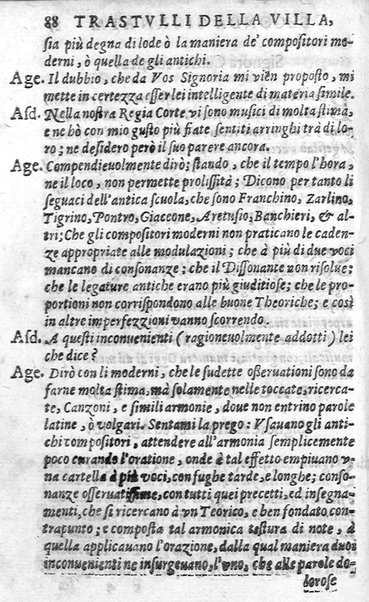 88 TRASTVLLI DELLA VILLA,
sia più degna di lode ò la maniera de' compositori mo-
derni, ò quella de gli antichi.
Age. Il dubbio, che da Vos Signoria mi viẽn proposto, mi
mette in certezza esser lei intelligente di materia simile.
Asd. Nella nostra Regia Corte vi sono musici di molta stima,
e ne hò con mio gusto più fiate sentiti arringhi trà di lo-
ro; ne desidero però il suo parere ancora.
Age. Compendieuolmente dirò; stando, che il tempo l'hora,
ne il loco, non permette prolissità; Dicono per tanto li
seguaci dell'antica scuola, che sono Franchino, Zarlino,
Tigrino, Pontio, Giaccone, Aretusio, Banchieri, & al-
tri; Che gli compositori moderni non praticano le caden-
ze appropriate alle modulazioni; che à più di due voci
mancano di consonanze; che il Dissonante non risolue;
che le legature antiche erano più giuditiose; che le pro-
portioni non corrispondono alle buone Theoriche; e così
in altre imperfezzioni vanno scorrendo.
Asd. A questi inconuenienti (ragioneuolmente addotti) lei
che dice?
Age. Dirò con li moderni, che le sudette osseruationi sono da
farne molta stima, mà solamente nelle toccate, ricerca-
te, Canzoni, e simili armonie, doue non entrino parole
latine, ò volgari. Sentami la prego: Vsauano gli anti-
chi compositori, attendere all'armonia semplicemente
poco curando l'oratione, onde à tal effetto empiuano v-
na cartella à più voci, con fughe tarde, e longhe; conso-
nanze osseruatissime, con tutti quei precetti, ed insegna-
menti, che si ricercano à vn Teorico, e ben fondato con-
trapunto; e composta tal armonica testura di note, à
quella applicauano l'orazione, dalla qual maniera duoi
inconuenienti ne insurgeuano, l'vno, che alle parole do-
lorose